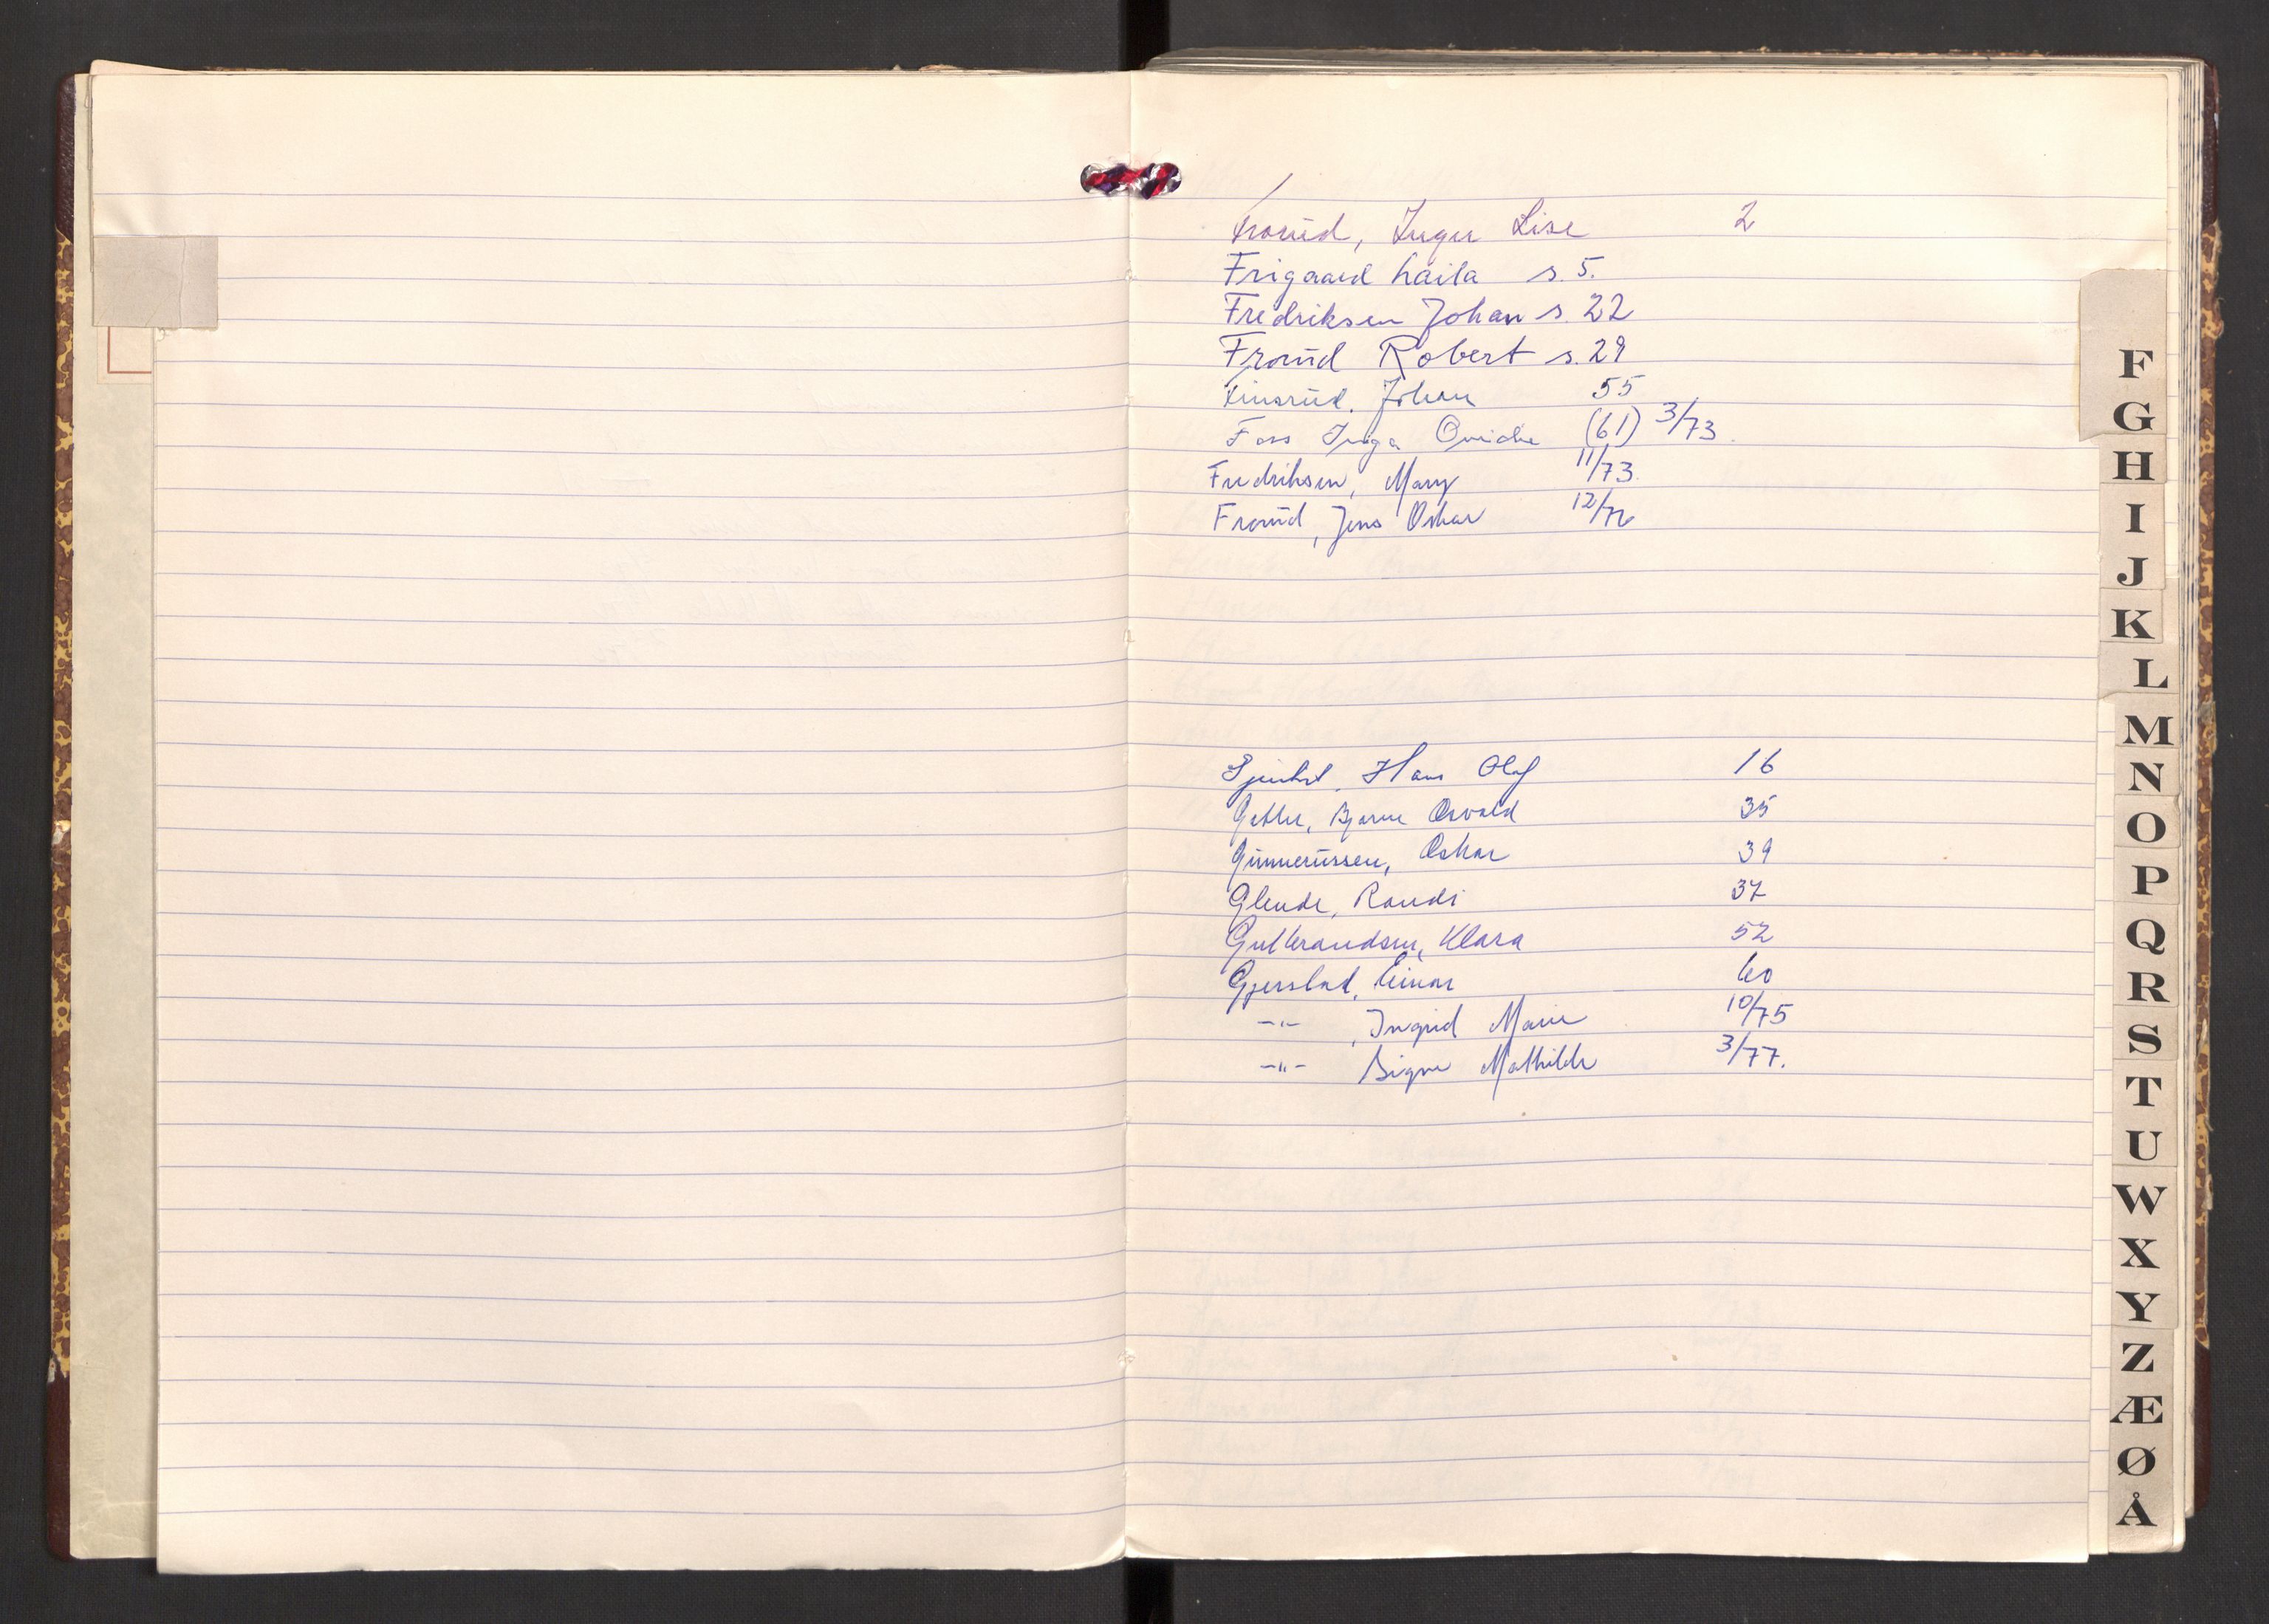 Frorud, Inger Lise 2
Frigaard Laila s. 5.
Fredriksen Johan s. 22
Frorud Robert s. 29
Finsrud, Johan 55
Foss Inga (61) 3/73
Fredriksen, Mary 11/73
Frorud, Jens Oskar 12/76
Hans Olaf 16
Bjarne Osvald 35
Gunnerussen, Oskar 39
Glende, Randi 37
Gulbrandsen, Klara 52
Einar 60
-"- , Ingrid Marie 10/75
-"- Signe Mathilde 3/77.
F
G
H
I
J
K
L
M
N
O
P
Q
R
S
T
U
W
X
Y
Z
Æ
Ø
Å